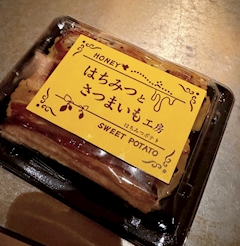 HONEY
はちみつと
さつまいも工房
はちみつポテト
SWEET POTATO